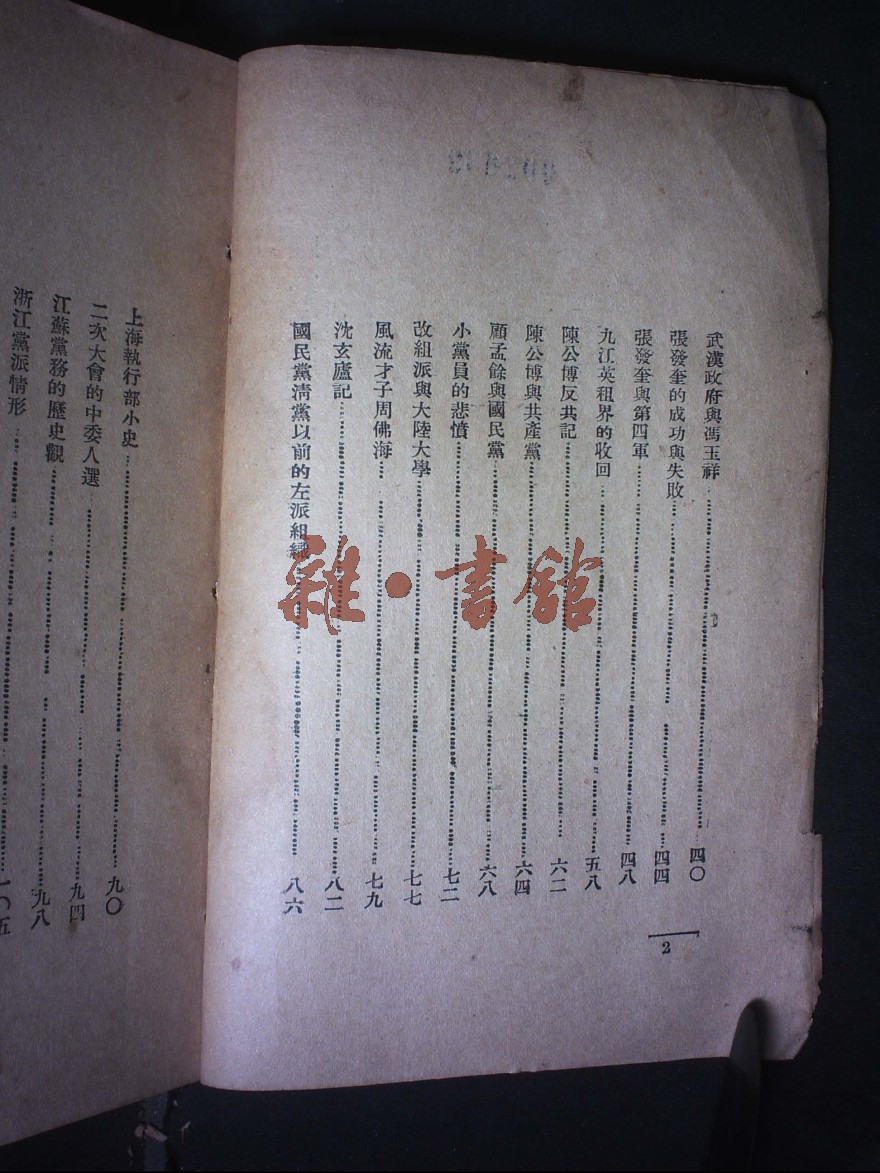 武漢政府與馮玉祥……四〇
張發奎的成功與失敗……四四
張發奎與第四軍……四八
九江英租界的收回……五八
陳公博反共記……六二
陳公博與共產黨……六四
顧孟餘與國民黨……六八
小黨員的悲憤……七二
改組派與大陸大學……七七
風流才子周佛海……七九
沈玄廬記……八二
國民黨清黨以前的左派組織……八六
2
上海執行部小史……九〇
二次大會的中委人選……九四
江蘇黨務的歷史觀……九八
浙江黨派情形……一〇五
雜·書館